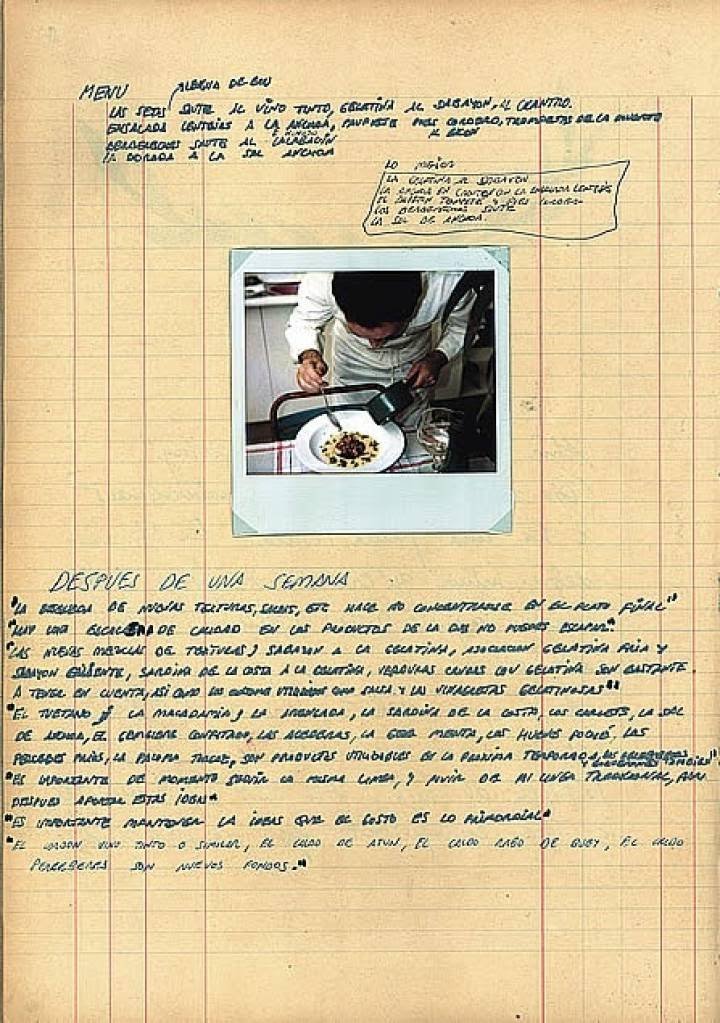 MENU ALBERIA DE
LAS SETAS SAUTE AL VINO TINTO, GELATINA AL SABAYON, AL CILANTRO.
ENSALADA LENTEJAS A LA ANCHOA, PIES CORDERO, TROMPETAS DE LA
BERBERECHOS SAUTE AL CALABACIN
LA DORADA A LA SAL ANCHOA
LO MEJOR
LA GELATINA AL SABAYON
LA ANCHOA EN LA ENSALADA LENTEJAS
EL Y PIES CORDERO
LOS BERBERECHOS SAUTE
LA SAL DE ANCHOA.
DESPUES DE UNA SEMANA
"LA BUSQUEDA DE NUEVAS TEXTURAS, SALSAS, ETC HACE NO CONCENTRARSE EN EL PLATO FINAL"
"HAY UNA ESCALERA DE CALIDAD EN LOS PRODUCTOS DE LA QUE NO PUEDES ESCAPAR."
"LAS NUEVAS MEZCLAS DE TEXTURAS, SABAYON A LA GELATINA, ASOCIACION GELATINA FRIA Y
SABAYON CALIENTE, SARDINA DE LA COSTA A LA GELATINA, VERDURAS CRUDAS CON GELATINA SON BASTANTE
A TENER EN CUENTA, ASI COMO LOS UTILIZADOS COMO SALSA Y LAS VINAGRETAS GELATINOSAS"
"EL TUETANO Y LA MACADAMIA, LA SARDINA DE LA COSTA, LOS LA SAL
DE ANCHOA, EL GENGIBRE CONFITADO, LAS ACEDERAS, LA MENTA, LOS HUEVOS POCHÉ, LAS
LA PALOMA TORCAZ, SON PRODUCTOS UTILIZABLES EN LA PROXIMA TEMPORADA,
"ES IMPORTANTE DE MOMENTO SEGUIR LA MISMA LINEA, Y DE MI LINEA TRADICIONAL, PARA
DESPUES APORTAR ESTAS IDEAS"
"ES IMPORTANTE MANTENER LA IDEA QUE EL GUSTO ES LO PRIMORDIAL"
"EL VINO TINTO O SIMILAR, EL CALDO DE ATUN, EL CALDO RABO DE BUEY, EL CALDO
PERCEBES SON NUEVOS FONDOS."